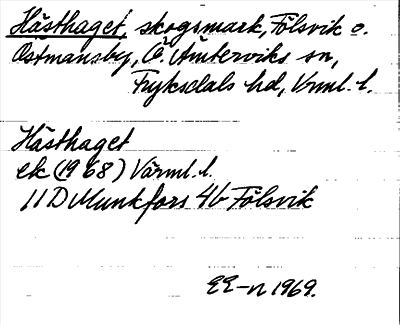 Hästhaget, skogsmark, Fölsvik o.
Östmansby, Ö. Ämterviks sn,
Fryksdals hd, Vrml. l.
Hästhaget
ek (1968) Värml. l.
11D Munkfors 4b Fölsvik
EE-n 1969.